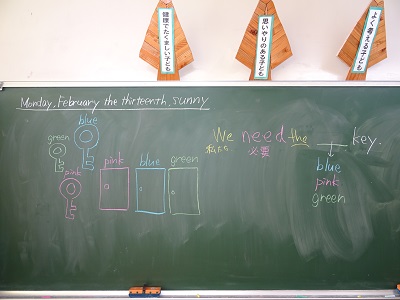 健康でたくましい子ども
思いやりのある子ども
よく考える子ども
Monday, February the thirteenth, sunny
green
blue
pink
pink
blue
green
We need the ___ key.
私たち
必要
blue
pink
green